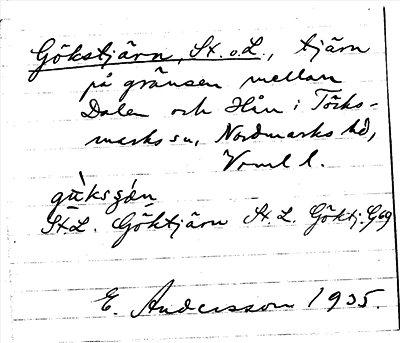 Gökstjärn, St. o. L., tjärn
på gränsen mellan
Dalen och Hån i Töcks-
marks sn, Nordmarks hd,
Vrml l.
St. L. Göktjärn St. L. Göktj. G69
E. Andersson 1935.